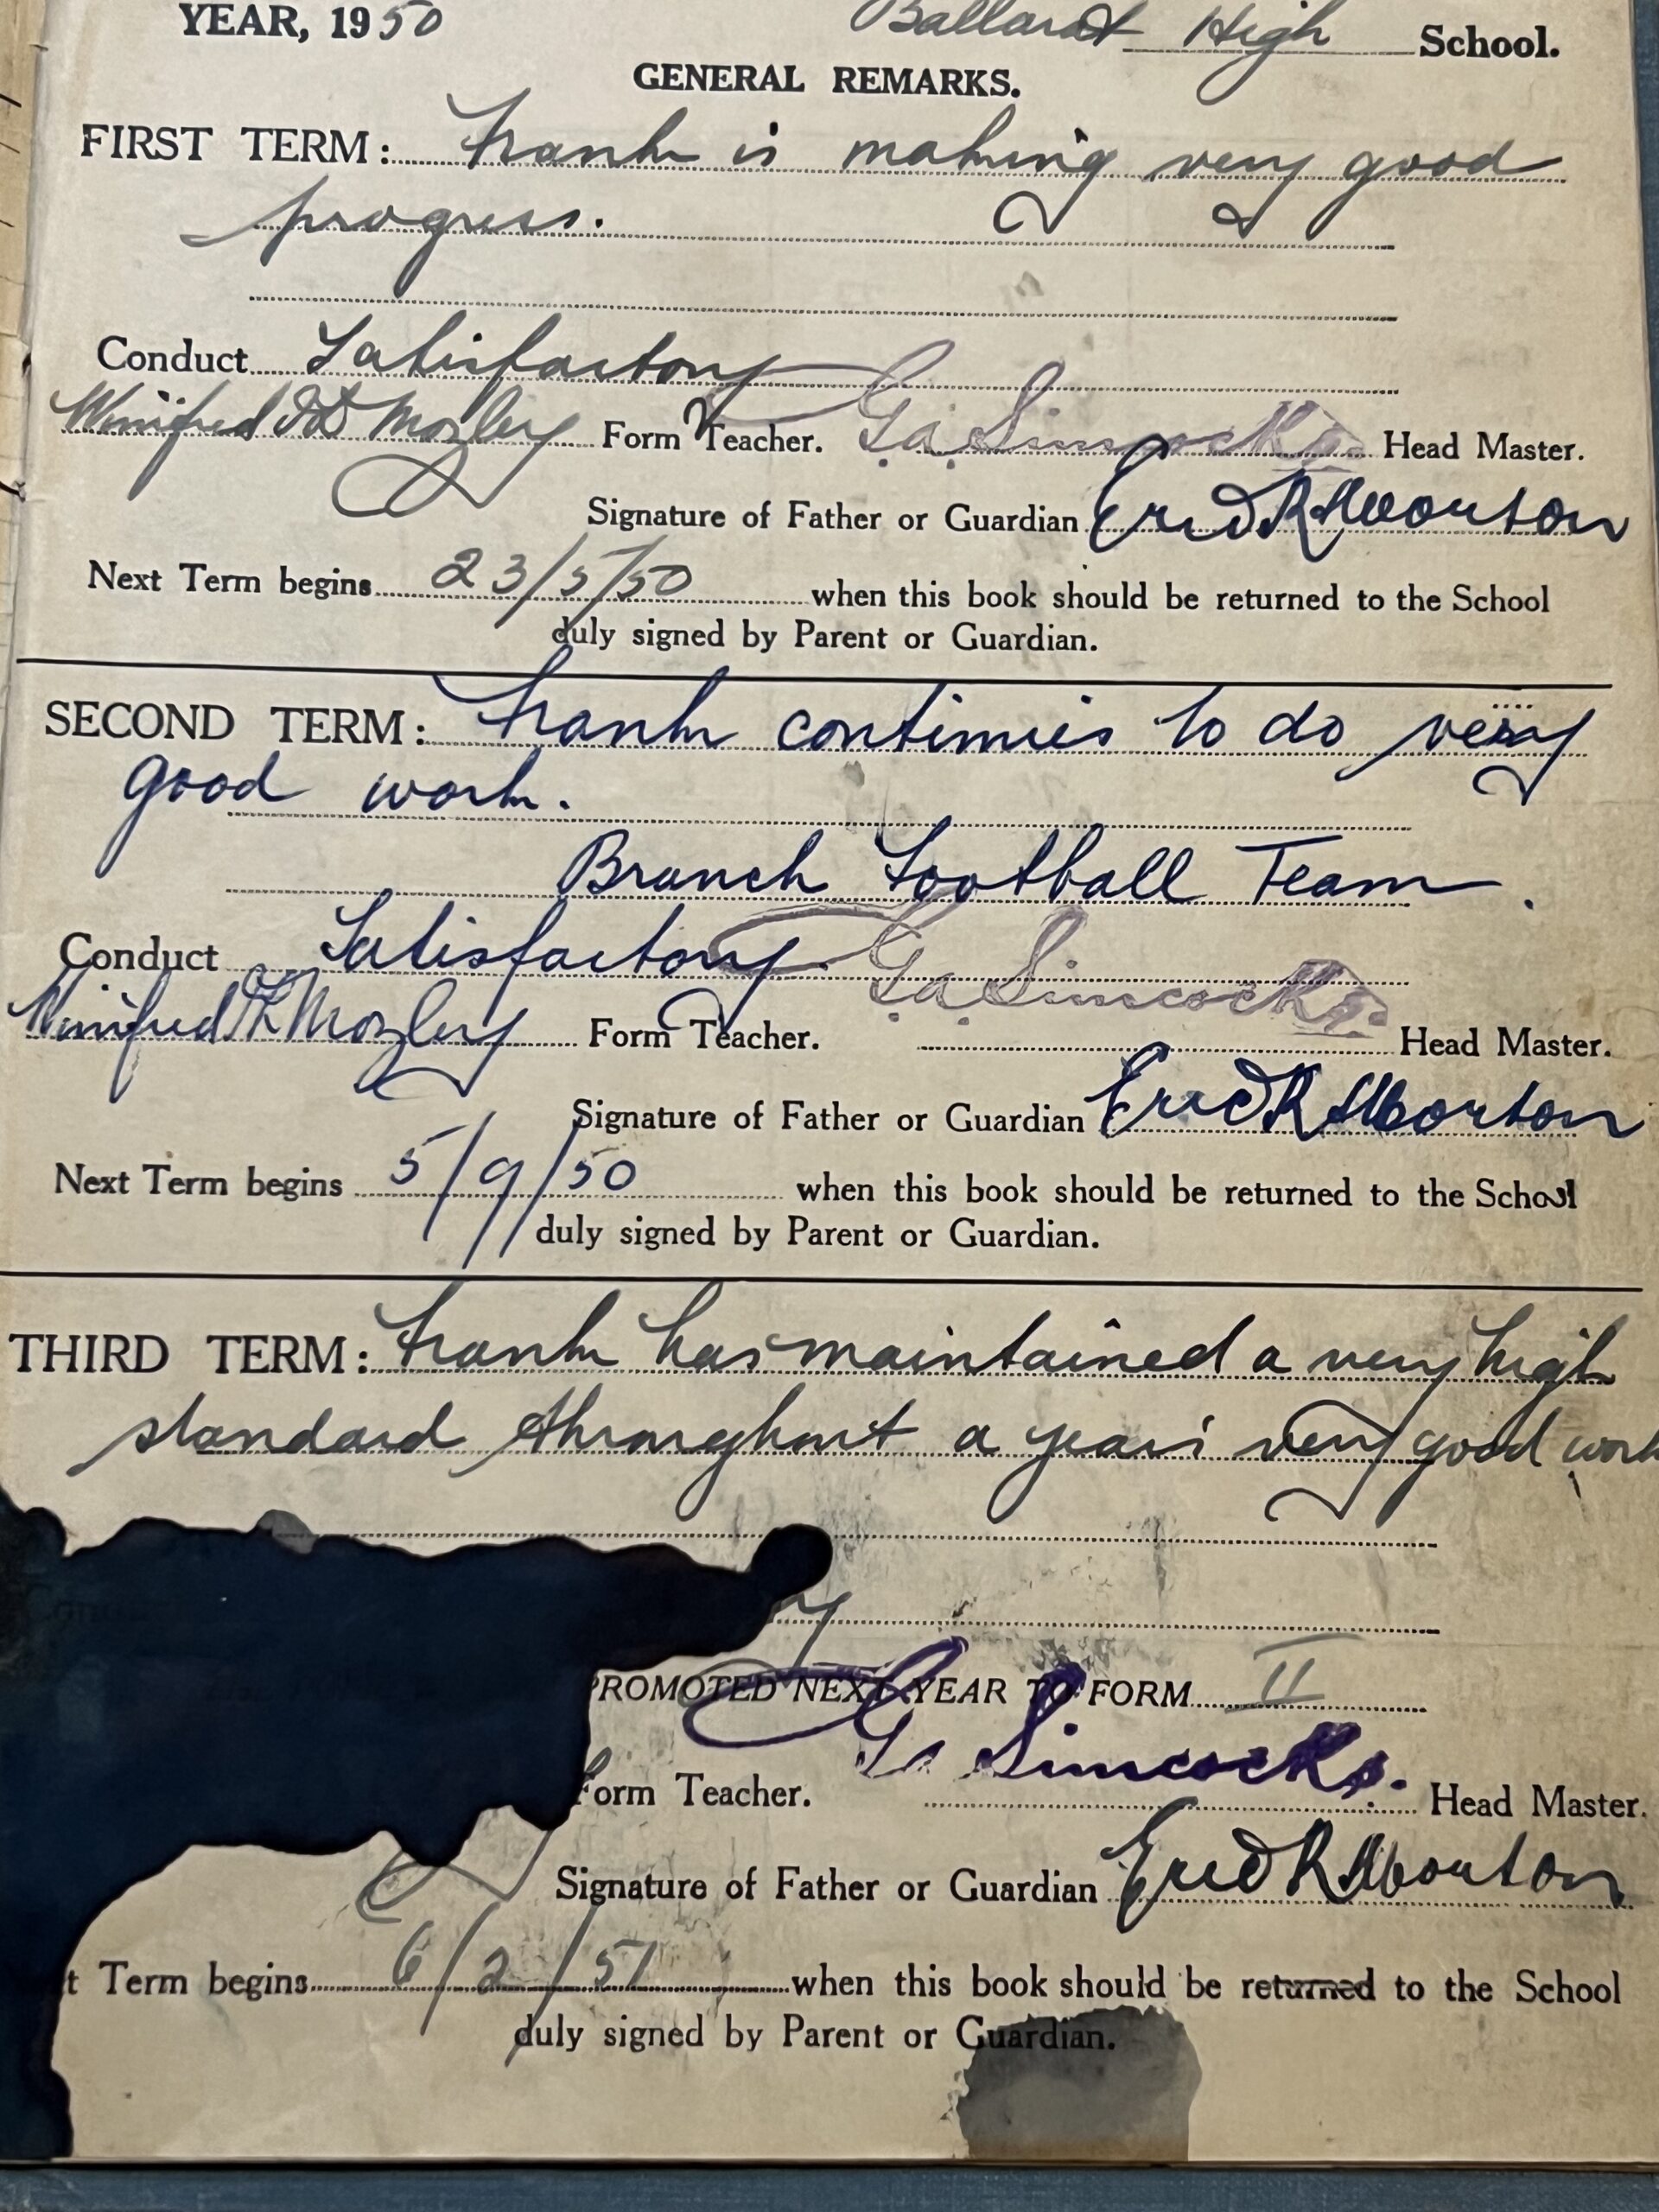 YEAR, 1950 Ballarat High School.
GENERAL REMARKS.
FIRST TERM: Frank is making very good
progress.
Conduct Satisfactory
Winifred Mozley Form Teacher. G. A. Simcocks. Head Master.
Signature of Father or Guardian Eric R Horton
Next Term begins 23/5/50 when this book should be returned to the School
duly signed by Parent or Guardian.
SECOND TERM: Frank continues to do very
good work.
Branch Football Team.
Conduct Satisfactory.
Winifred Mozley Form Teacher. G. A. Simcocks. Head Master.
Signature of Father or Guardian Eric R Horton
Next Term begins 5/9/50 when this book should be returned to the School
duly signed by Parent or Guardian.
THIRD TERM: Frank has maintained a very high
standard throughout a year's very good work
PROMOTED NEXT YEAR TO FORM II
Form Teacher. G A Simcocks. Head Master.
Signature of Father or Guardian Eric R Horton
t Term begins 6/2/51 when this book should be returned to the School
duly signed by Parent or Guardian.